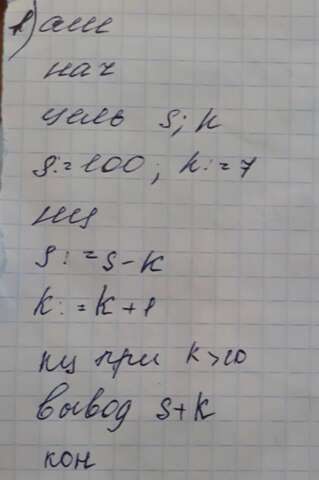 1) алг
нач
цель s; k
s:=100; k:=7
нц
s:=s-k
k:=k+1
кц при k>10
вывод s+k
кон